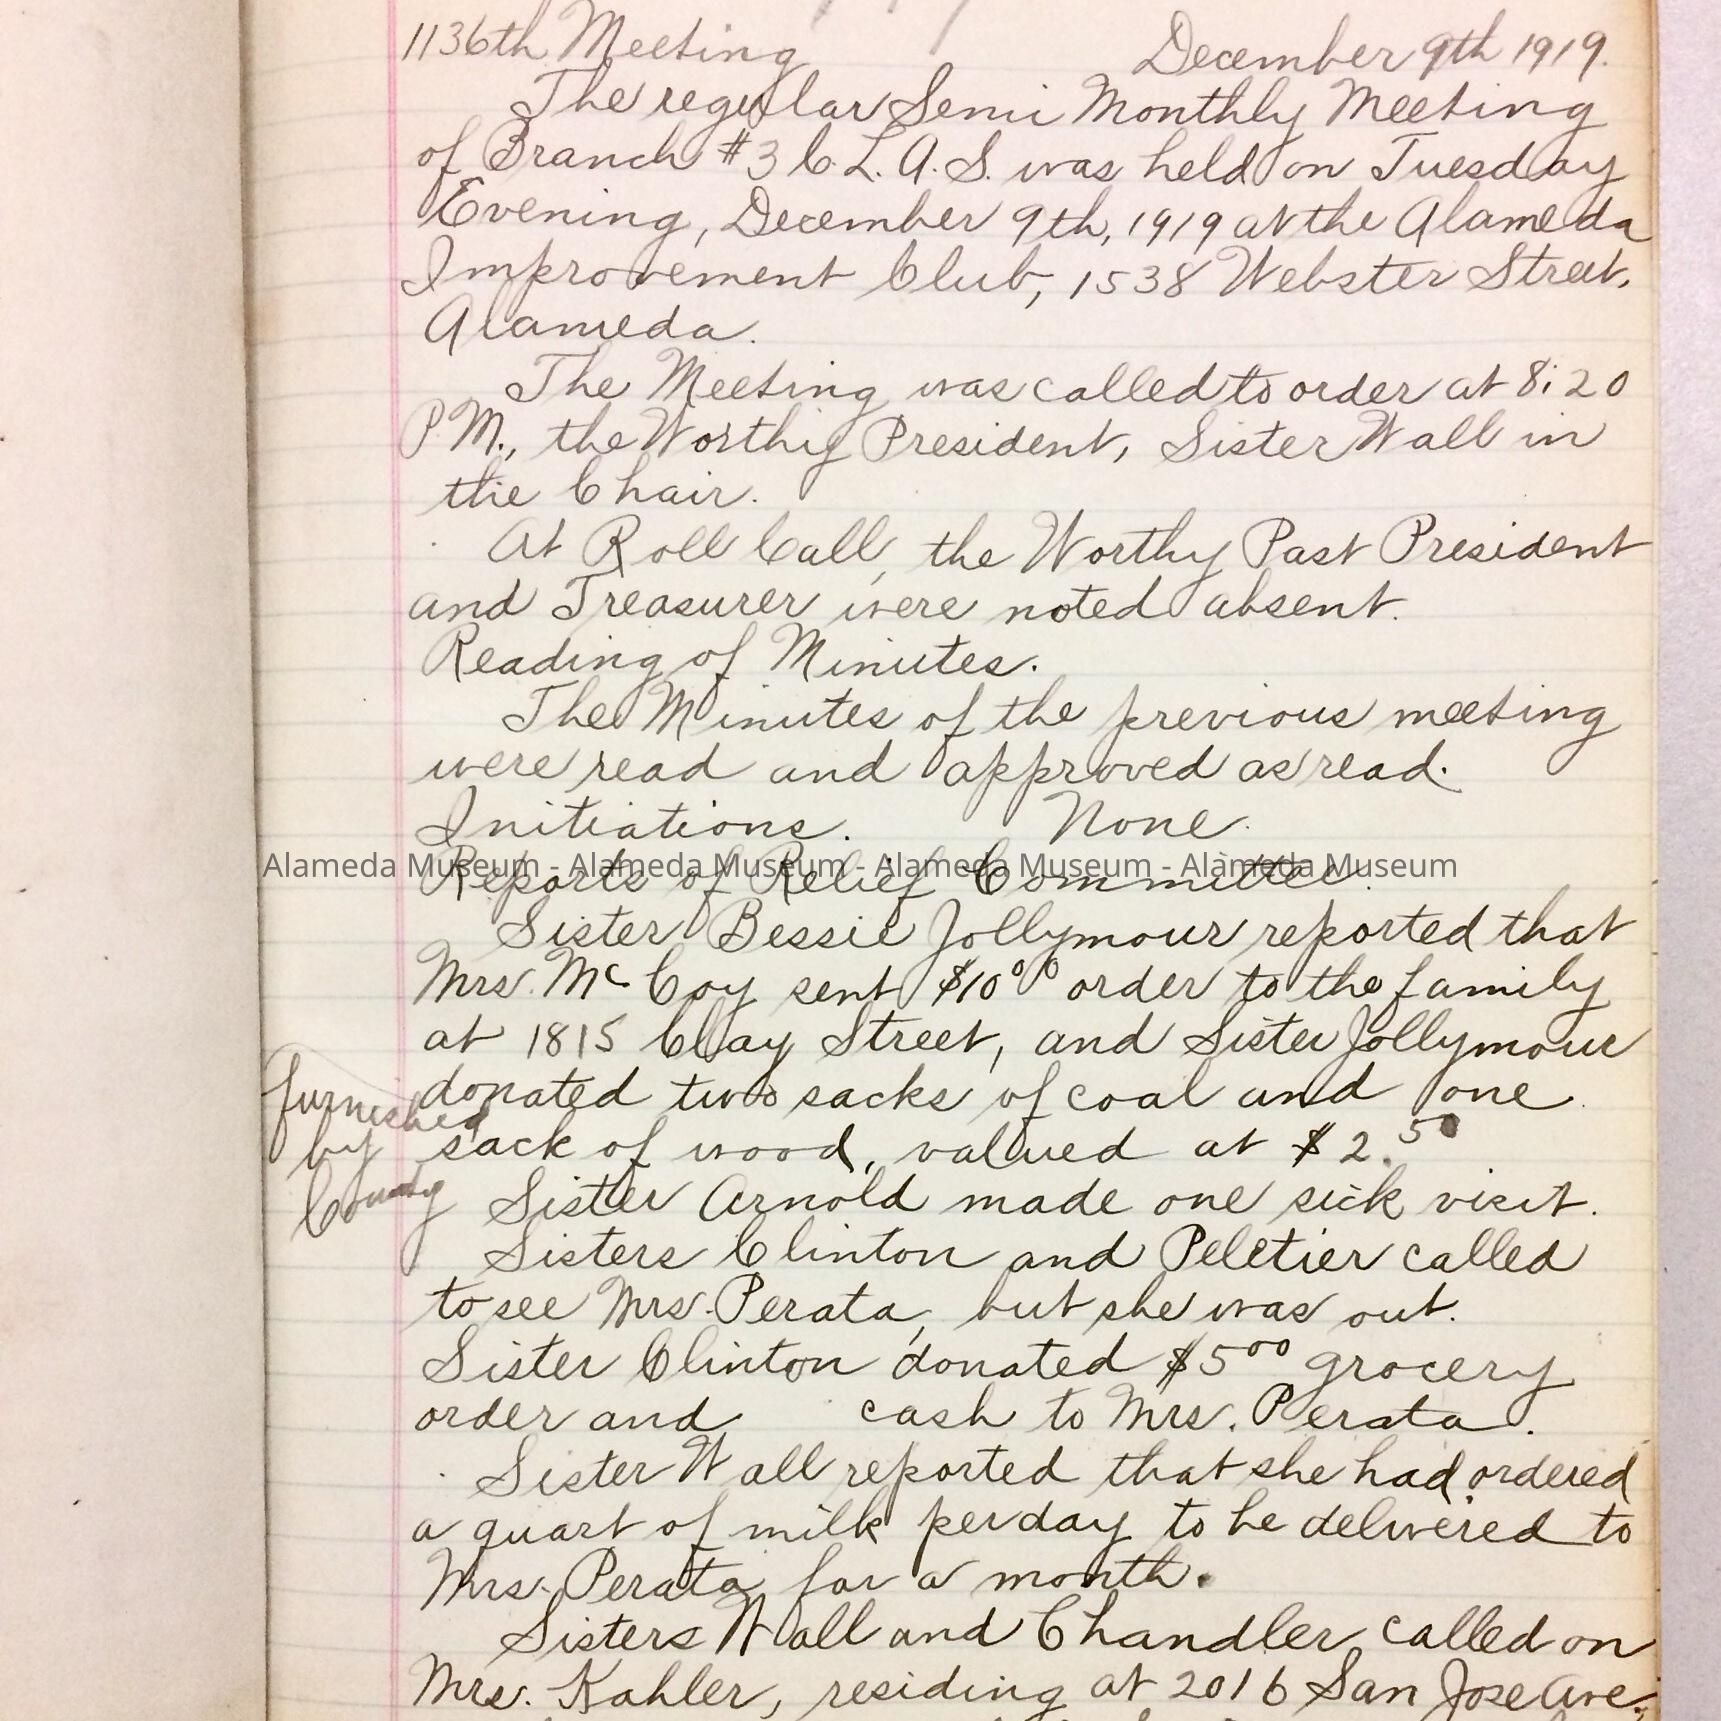 1136th Meeting December 9th 1919.
The regular Semi Monthly Meeting
of Branch #3 C. L. A. S. was held on Tuesday
Evening, December 9th, 1919 at the Alameda
Improvement Club, 1538 Webster Street,
Alameda.
The Meeting was called to order at 8:20
P.M., the Worthy President, Sister Wall in
the Chair.
At Roll Call, the Worthy Past President
and Treasurer were noted absent.
Reading of Minutes.
The Minutes of the previous meeting
were read and approved as read.
Initiations. None.
Alameda Museum - Alameda Museum - Alameda Museum - Alameda Museum
Reports of Relief Committee.
Sister Bessie Jollymour reported that
Mrs. McCoy sent $10⁰⁰ order to the family
at 1815 Clay Street, and Sister Jollymour
donated two sacks of coal and one
sack of wood, valued at $2.⁵⁰
furnished
by
County
Sister Arnold made one sick visit.
Sisters Clinton and Peletier called
to see Mrs. Perata, but she was out.
Sister Clinton donated $5⁰⁰ grocery
order and cash to Mrs. Perata.
Sister Wall reported that she had ordered
a quart of milk per day to be delivered to
Mrs. Perata for a month.
Sisters Wall and Chandler called on
Mrs. Kahler, residing at 2016 San Jose Ave.,